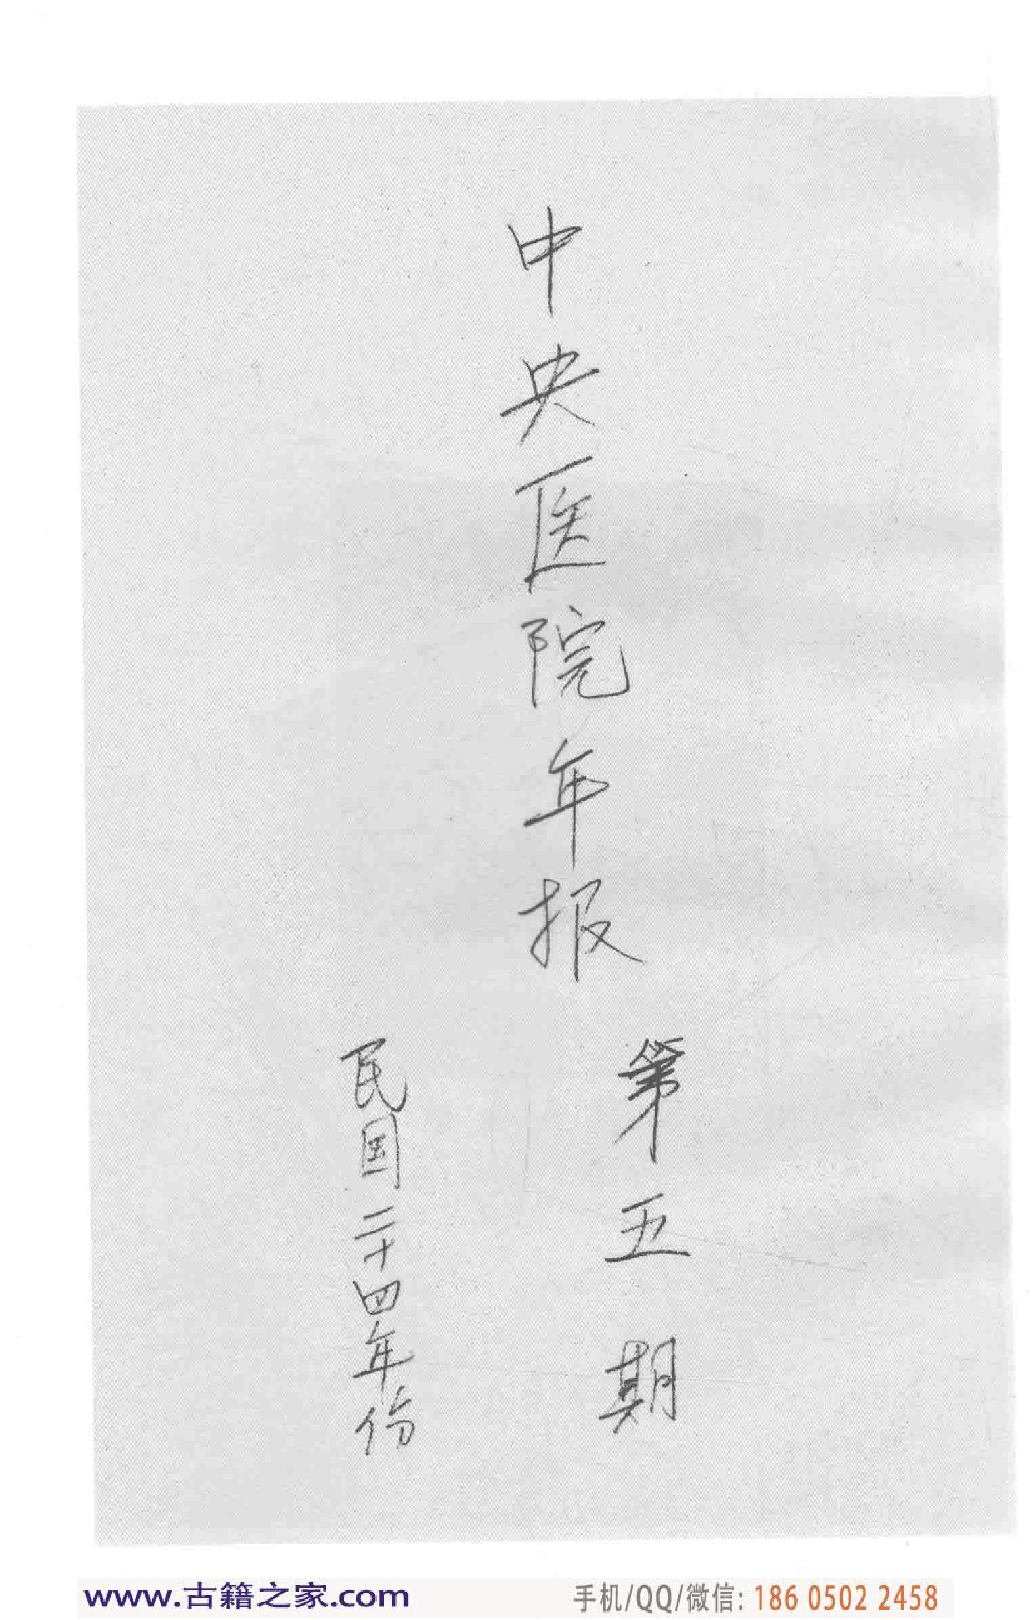 中央医院年报
第五期
民国二十四年份
www.古籍之家.com
手机/QQ/微信: 186 0502 2458